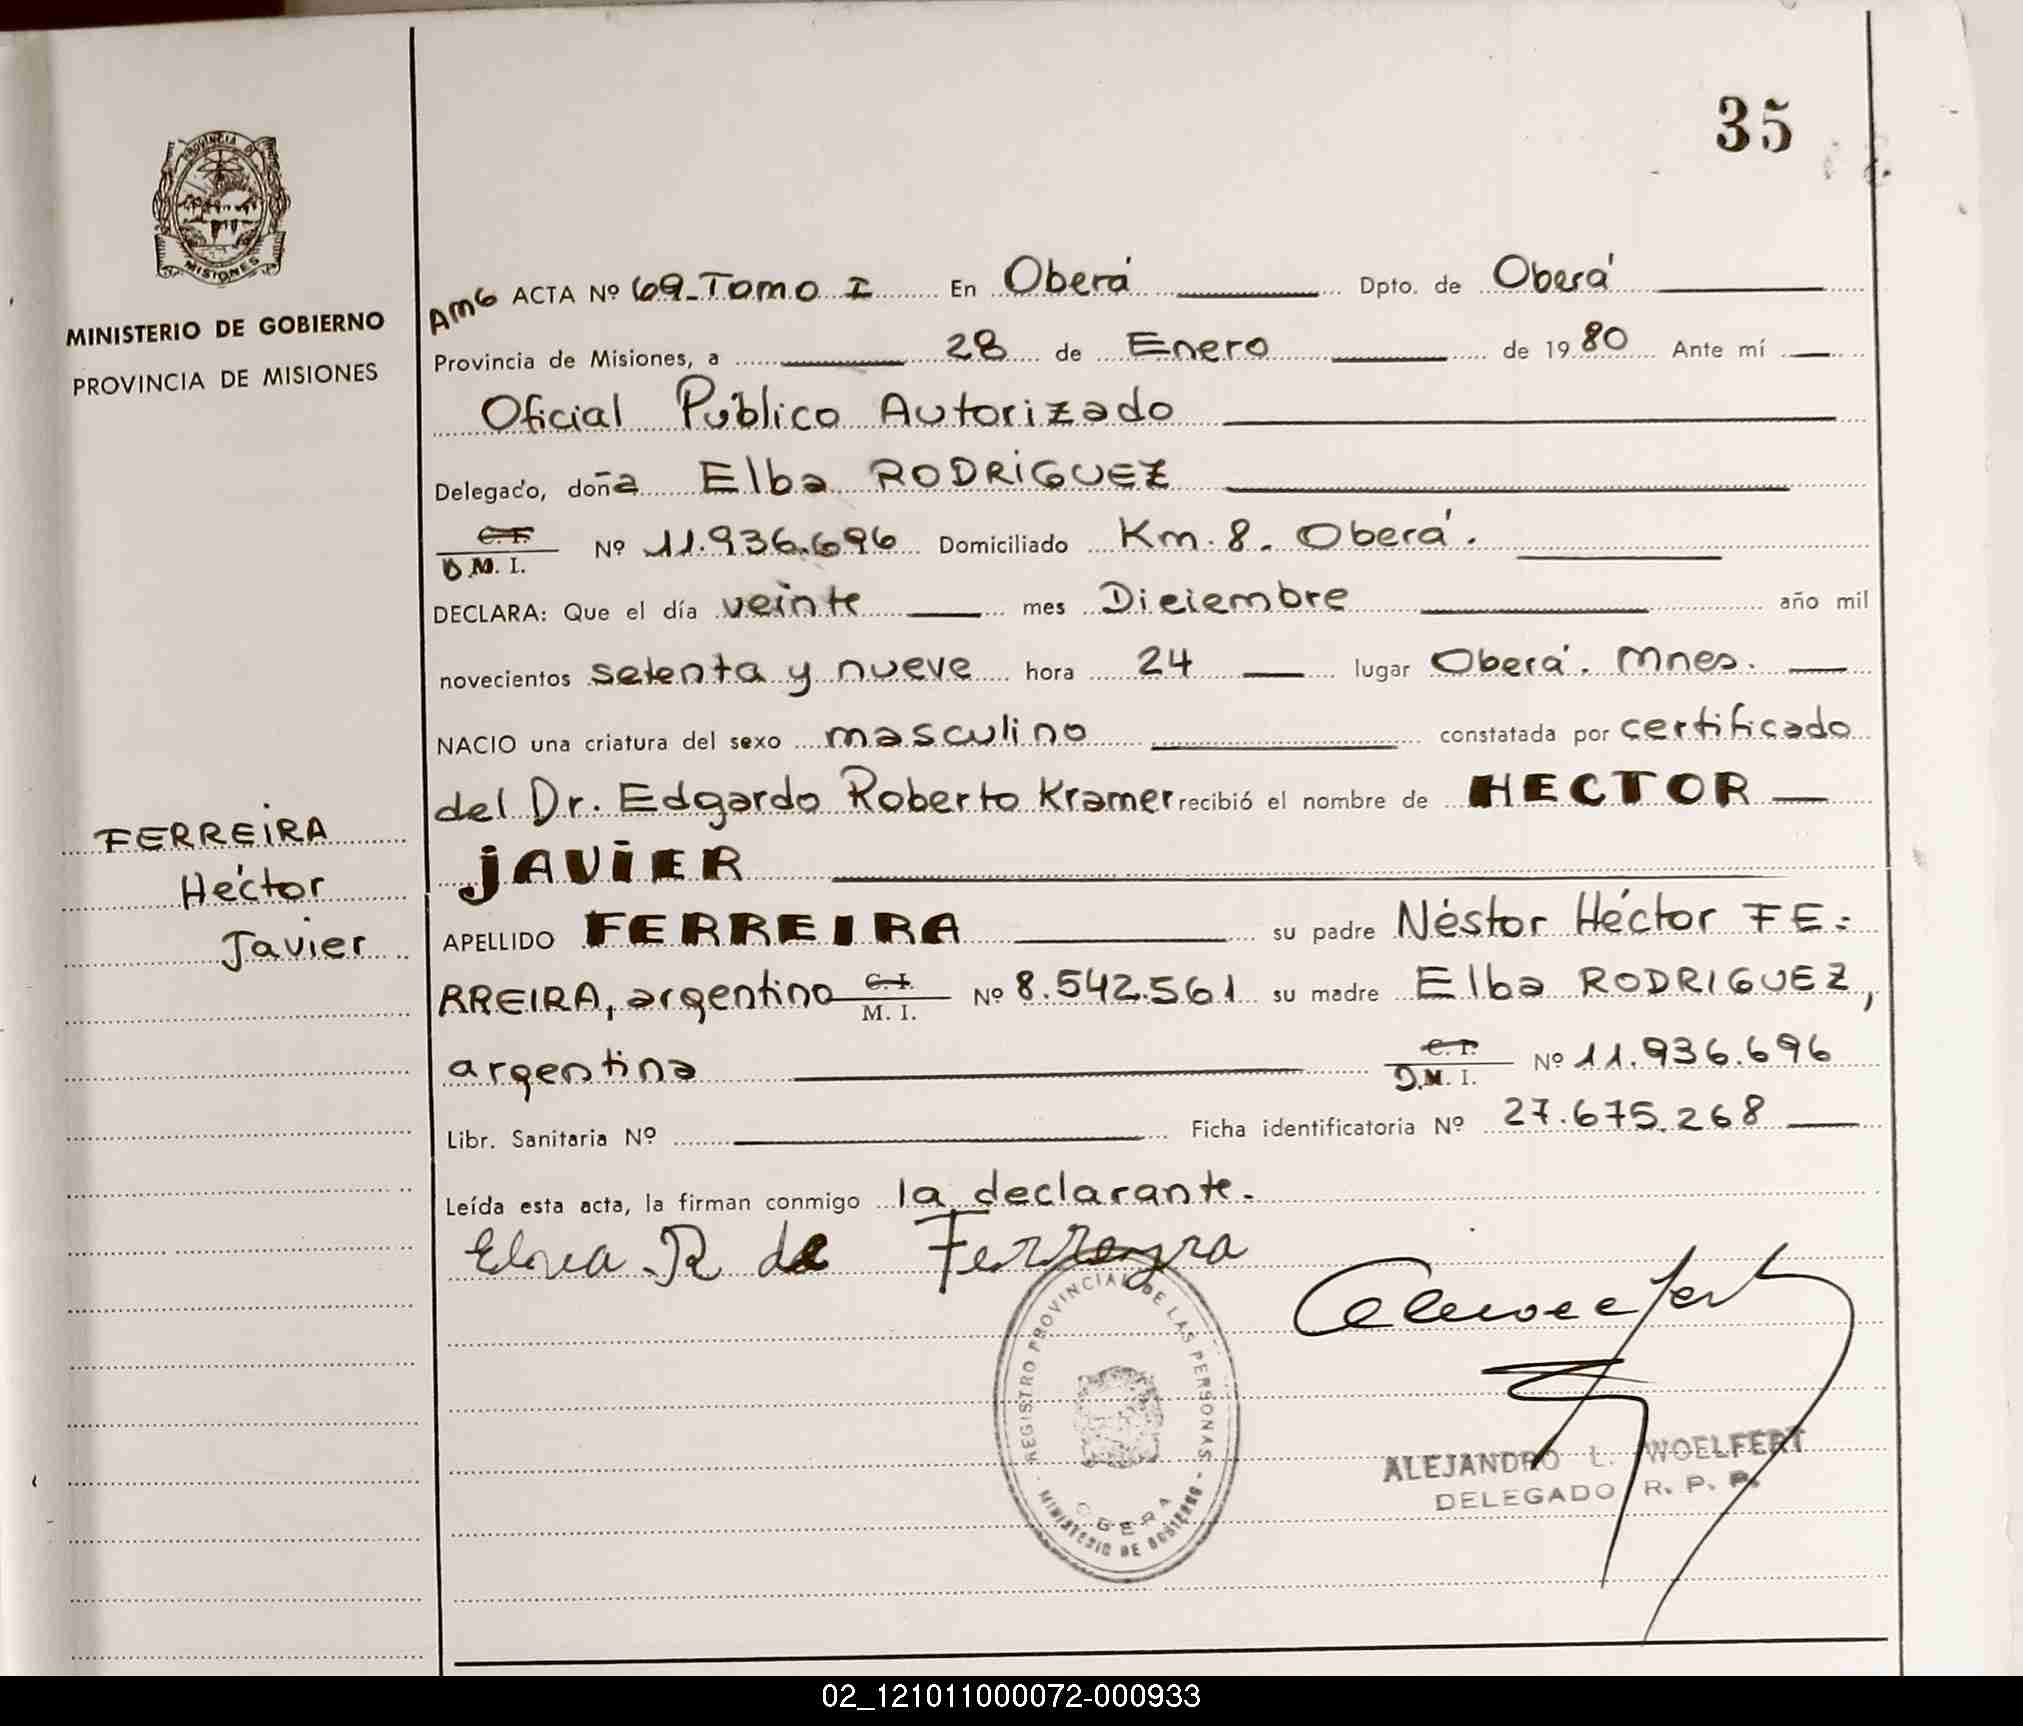 35
PROVINCIA DE
MISIONES
MINISTERIO DE GOBIERNO
PROVINCIA DE MISIONES
AMG ACTA Nº 69_Tomo I En Oberá Dpto. de Oberá
Provincia de Misiones, a 28 de Enero de 1980 Ante mí
Oficial Público Autorizado
Delegado, doña Elba RODRIGUEZ
C. I.
D.M. I. Nº 11.936.696 Domiciliado Km. 8. Oberá.
DECLARA: Que el día veinte mes Diciembre año mil
novecientos setenta y nueve hora 24 lugar Oberá. Mnes.
NACIO una criatura del sexo masculino constatada por certificado
del Dr. Edgardo Roberto Kramer recibió el nombre de HECTOR
JAVIER
APELLIDO FERREIRA su padre Néstor Héctor FE=
RREIRA, argentino C. I. M. I. Nº 8.542.561 su madre Elba RODRIGUEZ,
argentina C. I. D.M. I. Nº 11.936.696
Libr. Sanitaria Nº Ficha identificatoria Nº 27.675.268
Leída esta acta, la firman conmigo la declarante.
FERREIRA
Héctor
Javier
R de Ferreyra
REGISTRO PROVINCIAL DE LAS PERSONAS
OBERA
MINISTERIO DE GOBIERNO
ALEJANDRO L. WOELFERT
DELEGADO R. P. P.
02_121011000072-000933